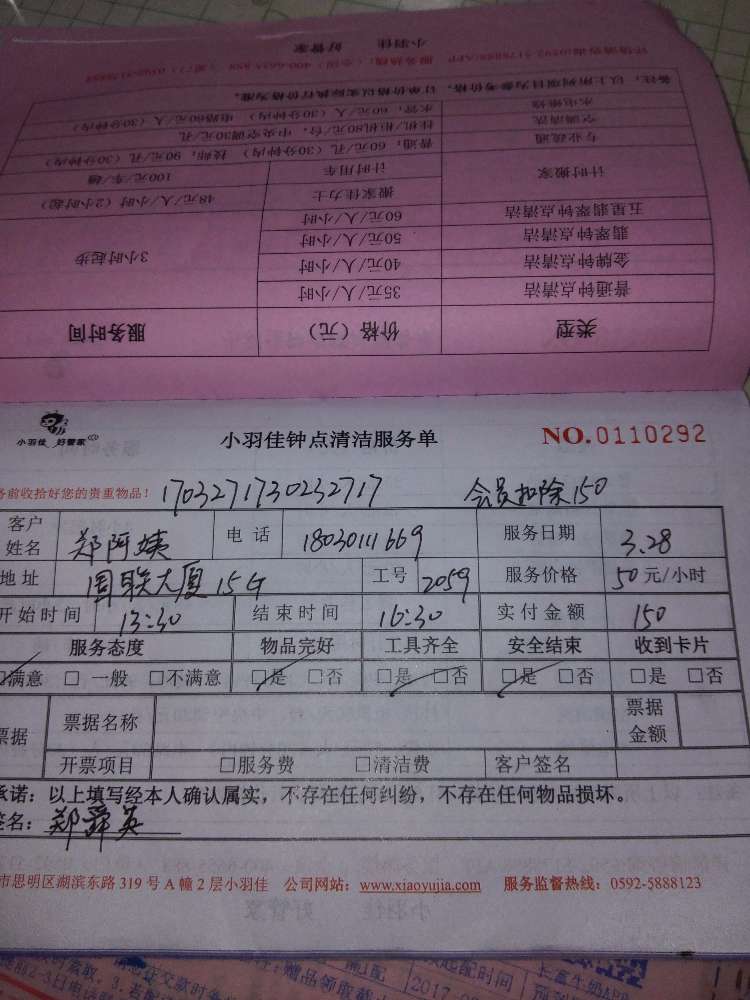 小羽佳 好管家
小羽佳钟点清洁服务单
NO.0110292
务前收拾好您的贵重物品！
1703271730232717
会员扣除150
客户姓名 郑阿姨 电话 18030111669 服务日期 3.28
地址 国联大厦15G 工号 2059 服务价格 50元/小时
开始时间 13:30 结束时间 16:30 实付金额 150
服务态度 物品完好 工具齐全 安全结束 收到卡片
□满意 □一般 □不满意 □是 □否 □是 □否 □是 □否 □是 □否
票据 票据名称 票据金额
开票项目 □服务费 □清洁费 客户签名
承诺：以上填写经本人确认属实，不存在任何纠纷，不存在任何物品损坏。
签名：郑舜英
市思明区湖滨东路319号A幢2层小羽佳 公司网站：www.xiaoyujia.com 服务监督热线：0592-5888123
类型 价格（元） 服务时间
普通钟点清洁 35元/人/小时 3小时起步
金牌钟点清洁 40元/人/小时
翡翠钟点清洁 50元/人/小时
五星翡翠钟点清洁 60元/人/小时
计时搬家 搬家佳力士 48元/人/小时（2小时起）
计时用车 100元/车/趟
专业疏通 普通：60元/孔（30分钟内） 技师：90元/孔（30分钟内）
空调清洗 挂机/柜机80元/台，中央空调30元/孔
水电维修 水管：60元/人（30分钟内） 电路60元/人（30分钟内）
备注：以上所列项目为参考价格，订单价格以实际执行价格为准。
小羽佳 好管家